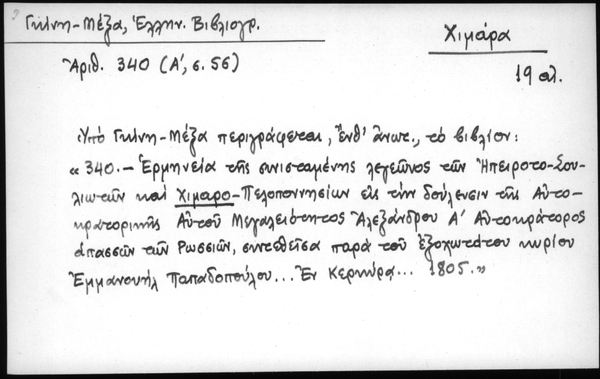 Γκίνη-Μέξα, Ἑλλην. Βιβλιογρ.
Χιμάρα
Ἀριθ. 340 (Α', σ. 56)
19 αἰ.
Ὑπό Γκίνη-Μέξα περιγράφεται, ἔνθ' ἄνωτ., τό βιβλίον:
« 340.- Ἑρμηνεία τῆς συνισταμένης λεγεῶνος τῶν Ἠπειροτο-Σου-
λιωτῶν καί Χιμαρο-Πελοποννησίων εἰς τήν δούλευσιν τῆς Αὐτο-
κρατορικῆς Αὐτοῦ Μεγαλειότητος Ἀλεξάνδρου Α' Αὐτοκράτορος
ἁπασσῶν τῶν Ρωσσιῶν, συντεθεῖσα παρά τοῦ ἐξοχωτάτου κυρίου
Ἐμμανουήλ Παπαδοπούλου... Ἐν Κερκύρᾳ... 1805.»